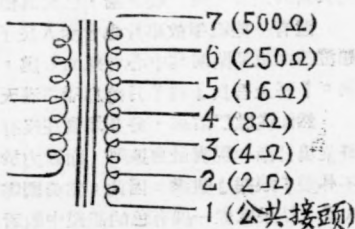 7 (500Ω)
6 (250Ω)
5 (16Ω)
4 (8Ω)
3 (4Ω)
2 (2Ω)
1 (公共接頭)